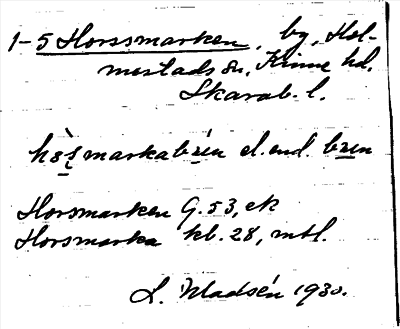 1-5 Horssmarken, by, Hol-
mestads sn, Kinne hd.
Skarab. l.
markabren el. end. bren
Horsmarken G. 53, ek
Horsmarka kb. 28, mtl.
L. Madsén 1930.